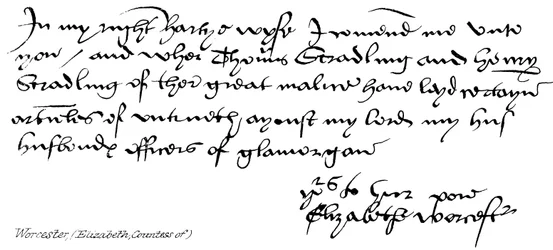 In my right hartye wyse I comend me vnto
you / and wher Thom͞s Stradling and henry
Stradling of ther great malice haue layd certayn
articles of vntrueth ayenst my lord my hus
husbondꝭ officers of glamorgan
yorͤs to hyr power
Elizabeth worcestr
Worcester, (Elizabeth, Countess of)